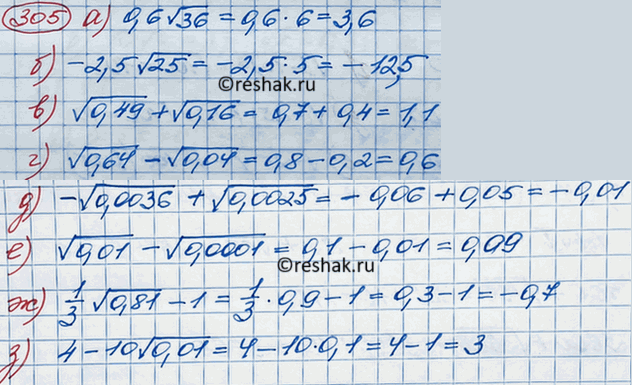 305 а) 0,6√36 = 0,6·6 = 3,6
б) -2,5√25 = -2,5·5 = -12,5
© reshak.ru
в) √0,49 + √0,16 = 0,7 + 0,4 = 1,1
г) √0,64 - √0,04 = 0,8 - 0,2 = 0,6
д) -√0,0036 + √0,0025 = -0,06 + 0,05 = -0,01
е) √0,01 - √0,0001 = 0,1 - 0,01 = 0,09
© reshak.ru
ж) 1/3 √0,81 - 1 = 1/3 · 0,9 - 1 = 0,3 - 1 = -0,7
з) 4 - 10√0,01 = 4 - 10·0,1 = 4 - 1 = 3